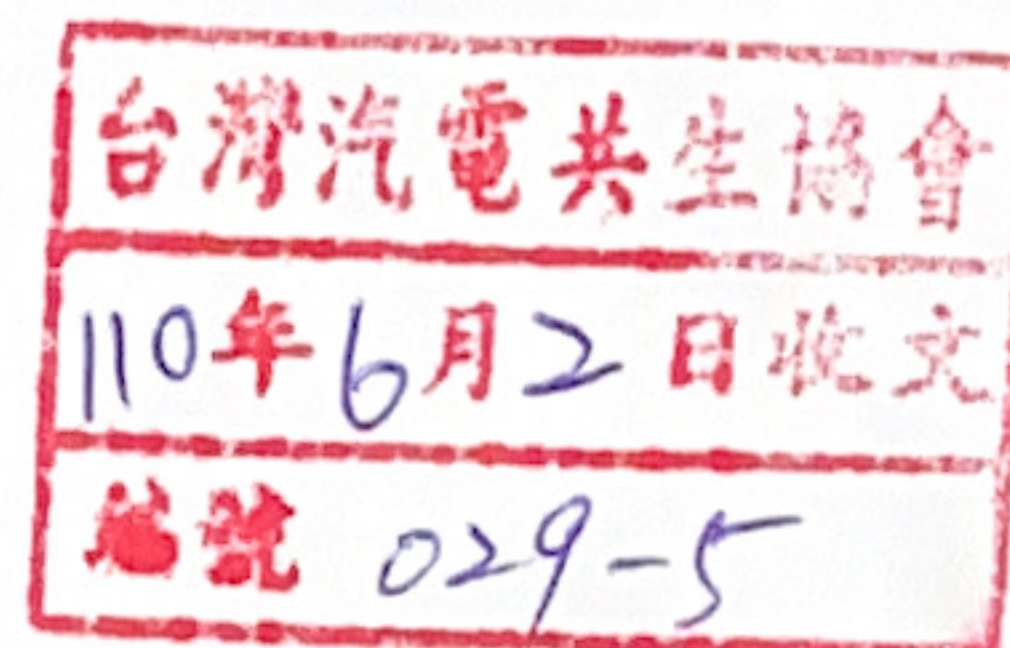 台灣汽電共生協會
110年6月2日收文
編號 029-5